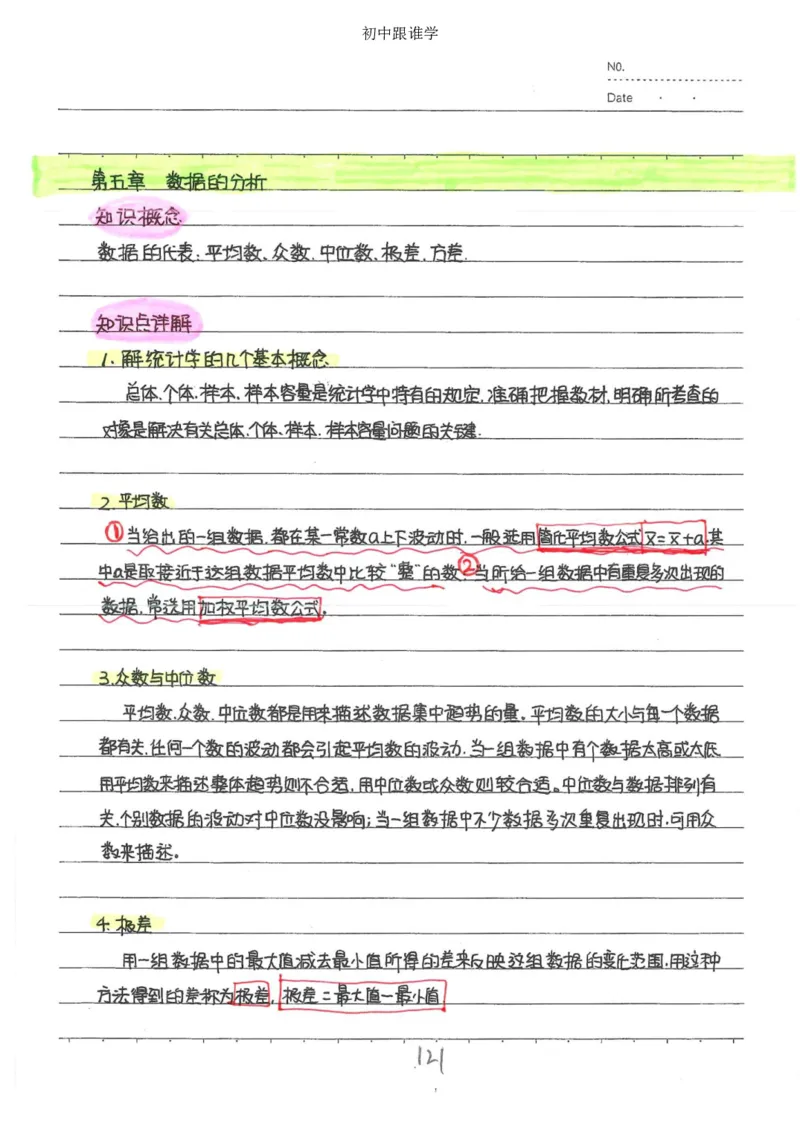 初中跟谁学
NO.
Date
第五章 数据的分析
知识概念
数据的代表:平均数、众数、中位数、极差、方差.
知识点详解
1.解统计学的几个基本概念
总体、个体、样本、样本容量是统计学中特有的规定,准确把握教材,明确所考查的
对象是解决有关总体、个体、样本、样本容量问题的关键.
2.平均数
①当给出的一组数据,都在某一常数a上下波动时,一般选用简化平均数公式x̄=x̄+a,其
中a是取接近于这组数据平均数中比较“整”的数;②当所给一组数据中有重复多次出现的
数据,常选用加权平均数公式。
3.众数与中位数
平均数、众数、中位数都是用来描述数据集中趋势的量。平均数的大小与每一个数据
都有关,任何一个数的波动都会引起平均数的波动,当一组数据中有个数据太高或太低,
用平均数来描述整体趋势则不合适,用中位数或众数则较合适。中位数与数据排列有
关,个别数据的波动对中位数没影响;当一组数据中不少数据多次重复出现时,可用众
数来描述。
4.极差
用一组数据中的最大值减去最小值所得的差来反映这组数据的变化范围,用这种
方法得到的差称为极差,极差=最大值-最小值
121